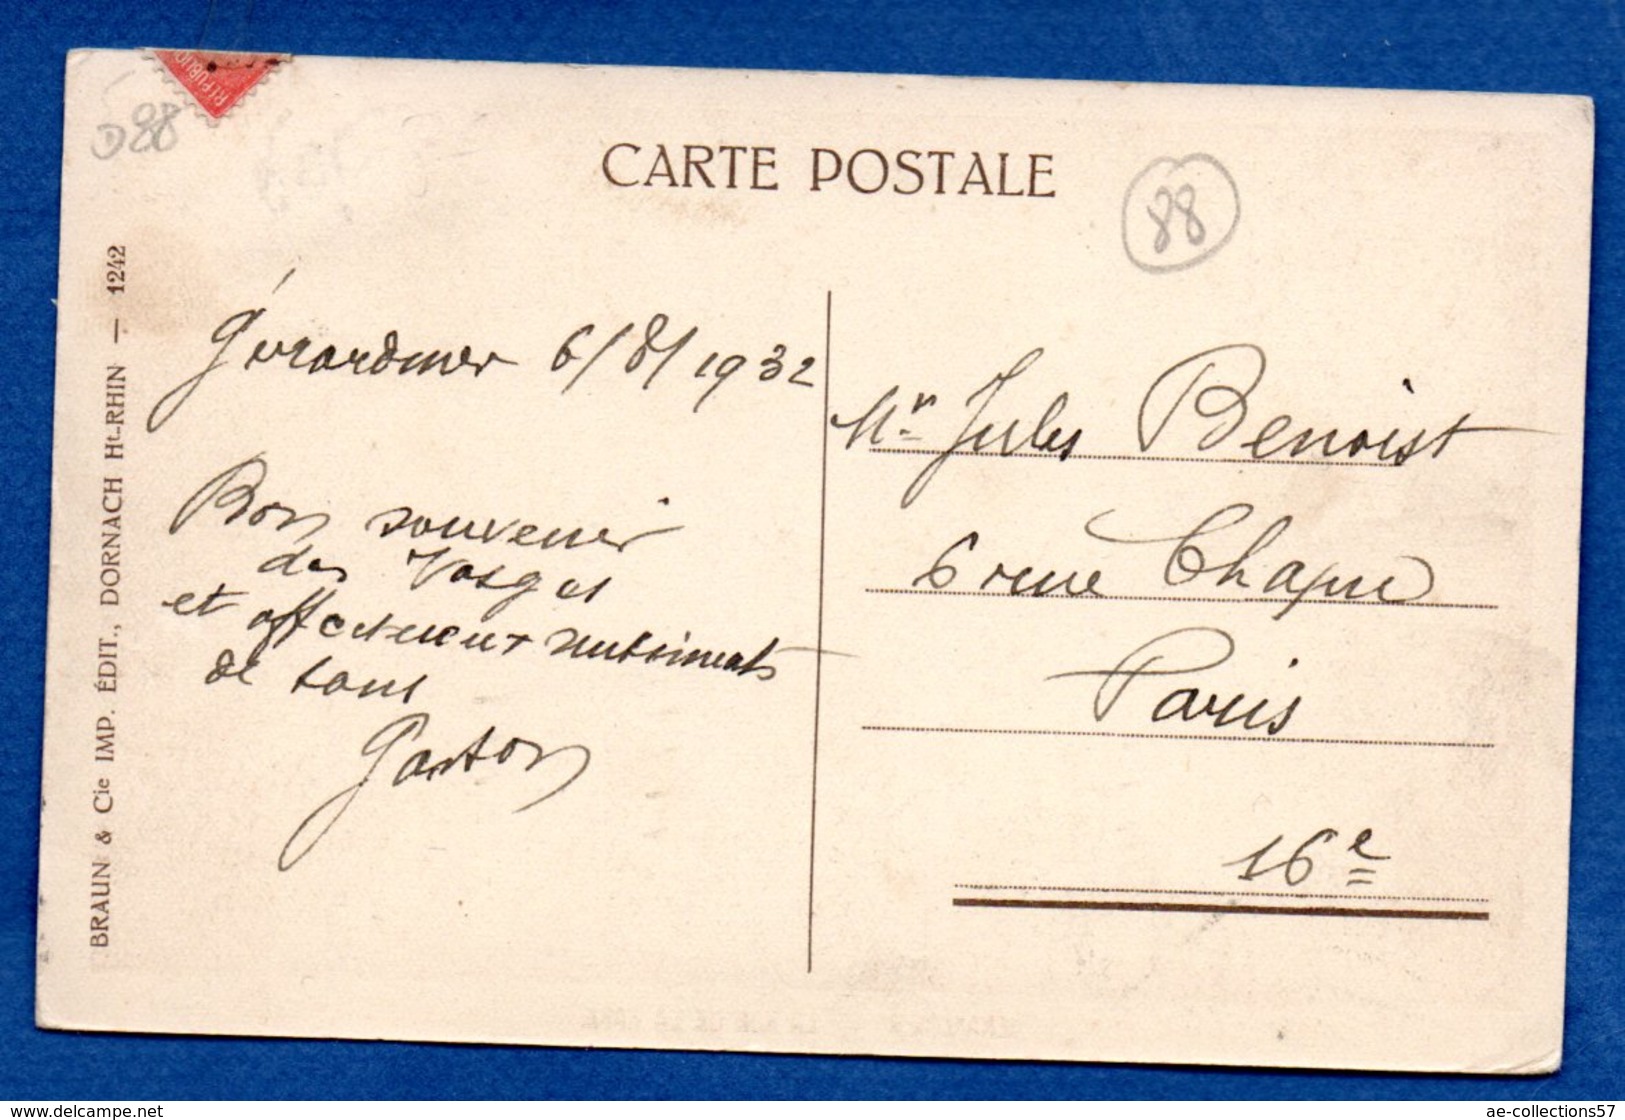 RÉPUBLIQ
D88
CARTE POSTALE
88
BRAUN & Cie IMP. ÉDIT., DORNACH Ht-RHIN — 1242
Gérardmer 6/8/1932
Bon souvenir
des Vosges
et affectueux sentiments
de tous
Gaston
Mr Jules Benoist
6 rue Chapu
Paris
16e
delcampe.net
ae-collections57